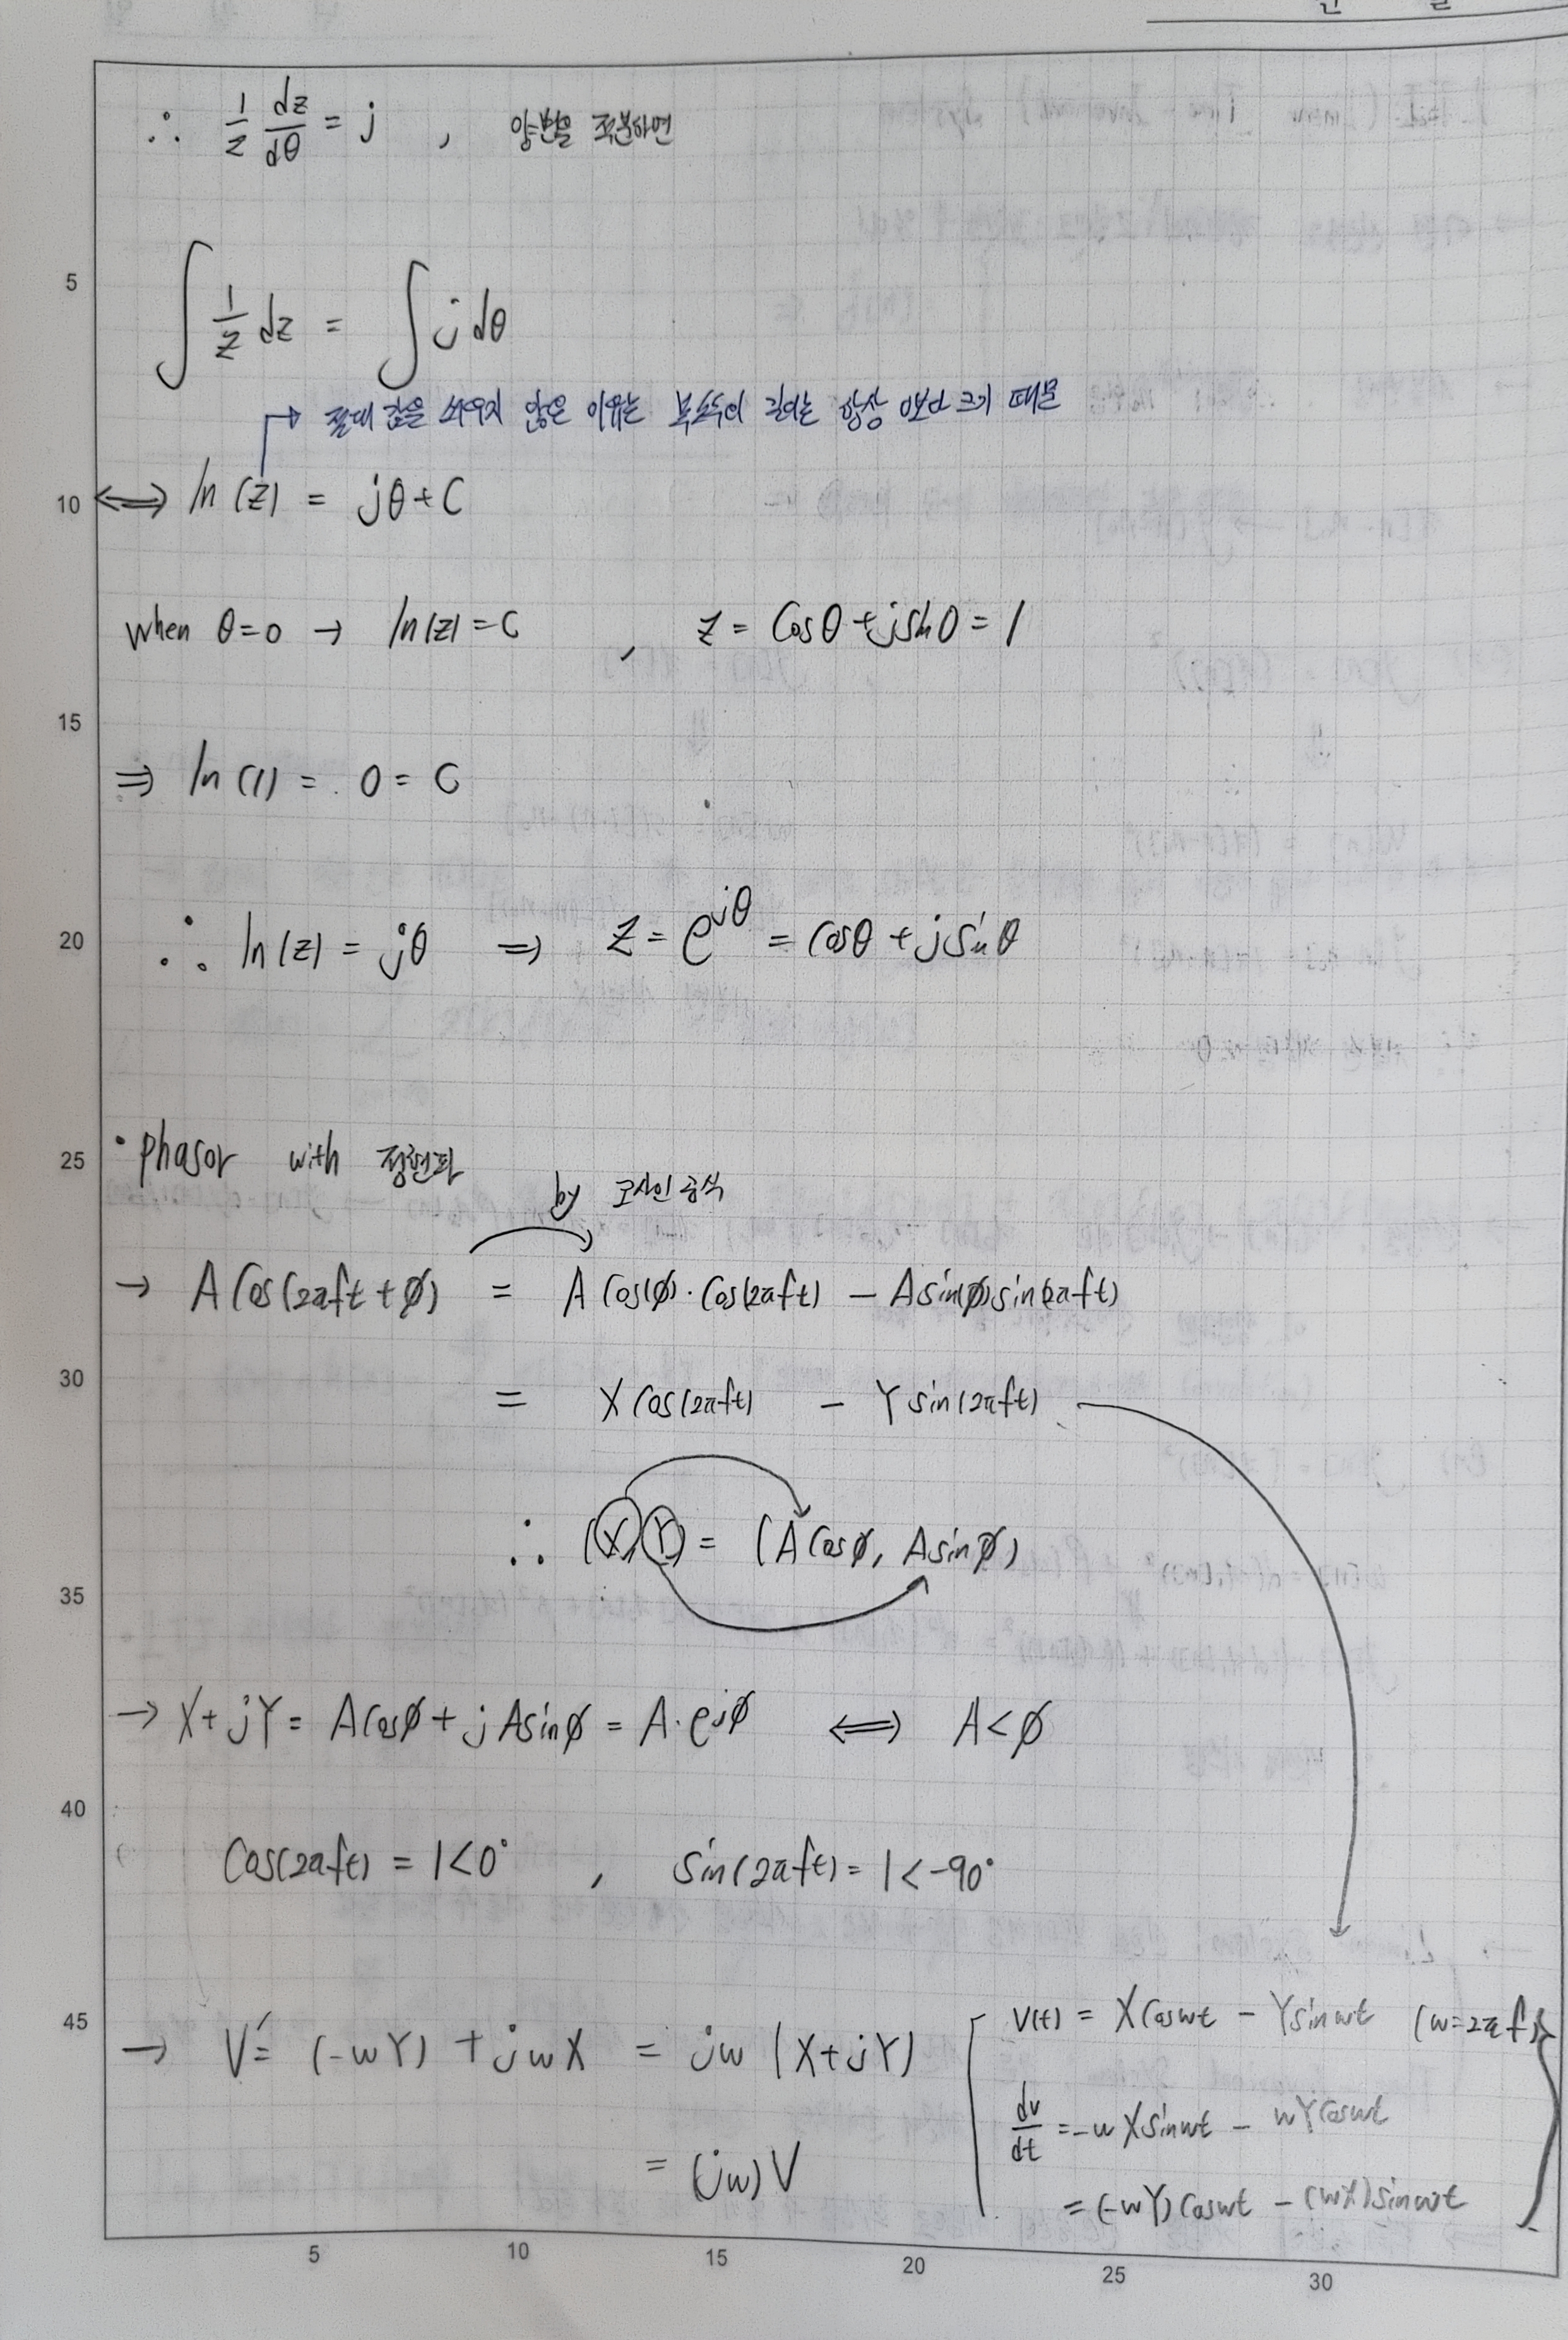 ∴ 1/z dz/dθ = j , 양변을 적분하면
5
∫ 1/z dz = ∫ j dθ
→ 절대 값을 씌우지 않은 이유는 복소수의 길이는 항상 0보다 크기 때문
10
⟺ ln(z) = jθ+C
when θ=0 → ln(z)=C , z = cosθ+jsinθ = 1
15
⇒ ln(1) = 0 = C
20
∴ ln(z) = jθ ⇒ z = e^jθ = cosθ + jsinθ
25
• phasor with 정현파
by 코사인 공식
→ A cos(2πft + ø) = A cos(ø)·cos(2πft) − A sin(ø)sin(2πft)
30
= X cos(2πft) − Y sin(2πft)
∴ (X, Y) = (A cosø, A sinø)
35
→ X+jY = A cosø + jA sinø = A·e^jø ⟺ A<ø
40
cos(2πft) = 1<0° , sin(2πft) = 1<-90°
45
→ V' = (-wY) + jwX = jw (X+jY)
= (jw)V
V(t) = X cos wt − Y sin wt (w=2πf)
dv/dt = -wX sin wt − wY cos wt
= (-wY) cos wt − (wX) sin wt
5 10 15 20 25 30